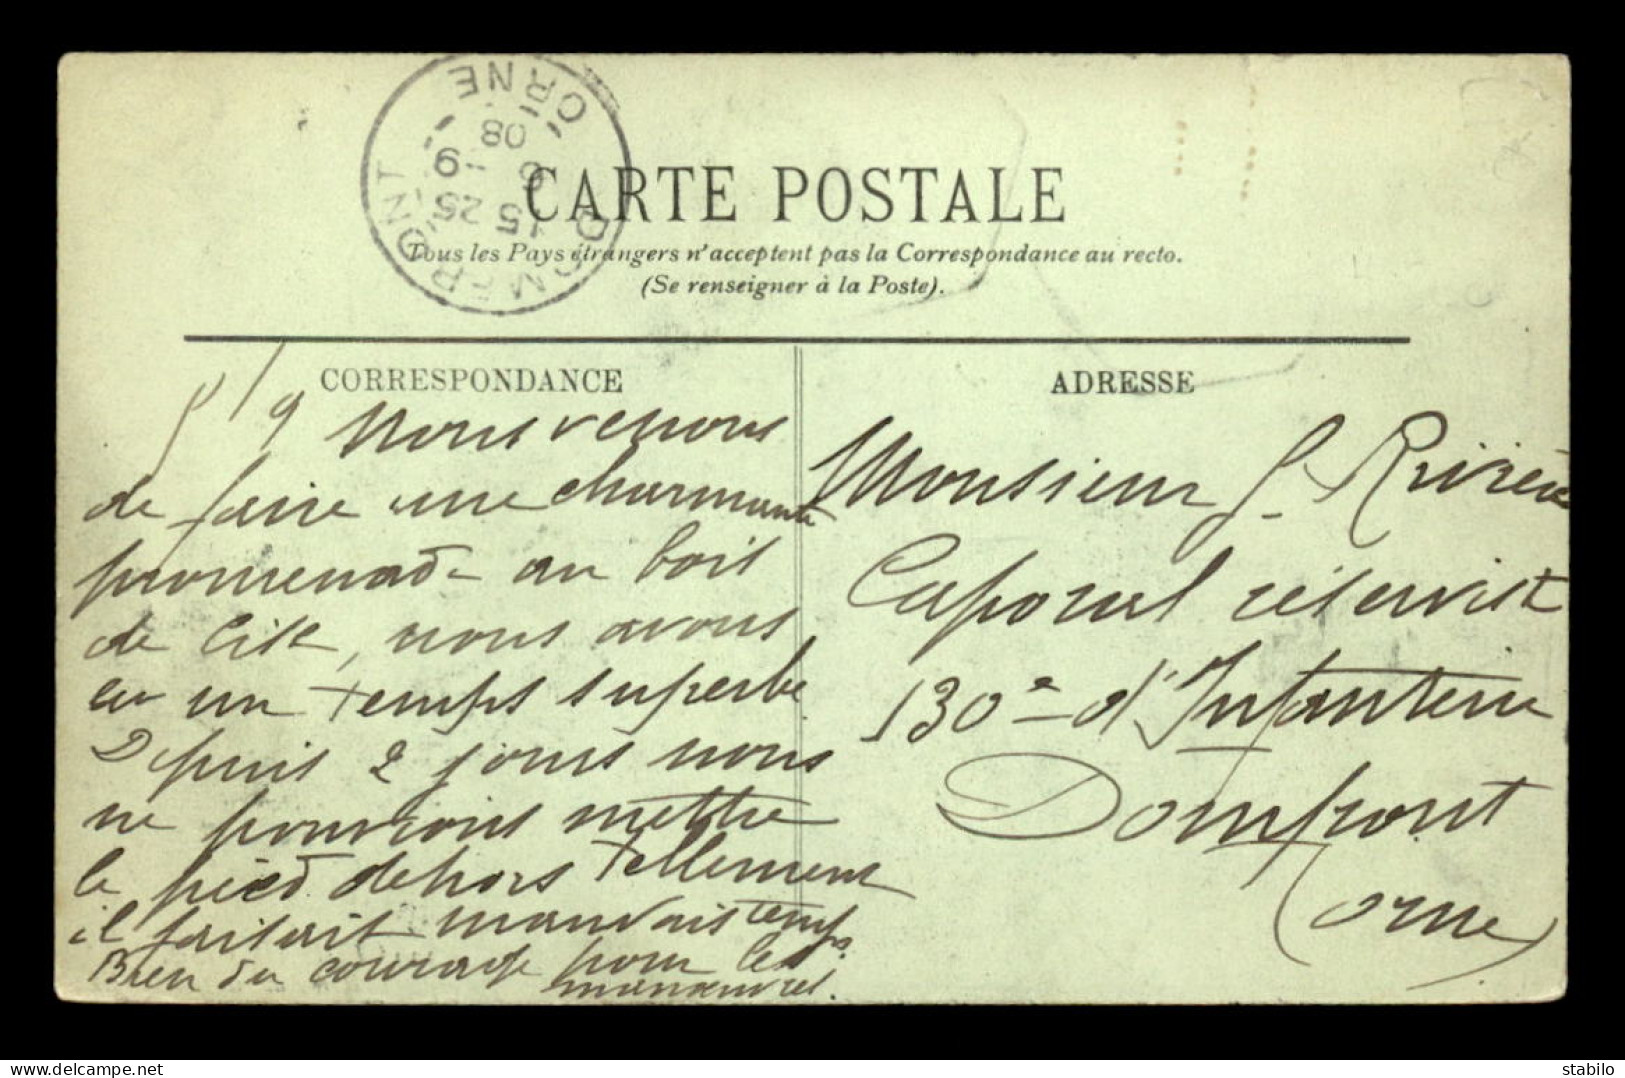 DOMFRONT
ORNE
15 25
6 - 9
08
CARTE POSTALE
Tous les Pays étrangers n'acceptent pas la Correspondance au recto.
(Se renseigner à la Poste).
CORRESPONDANCE
5/9 Nous venons
de faire une charmante
promenade au bois
de Cise, nous avons
eu un temps superbe
Depuis 2 jours nous
ne pouvions mettre
le pied dehors tellement
il faisait mauvais temps.
Bien du courage pour les
manœuvres.
ADRESSE
Monsieur G. Rivière
Caporal réserviste
130e d'Infanterie
Domfront
(Orne)
delcampe.net
stabilo